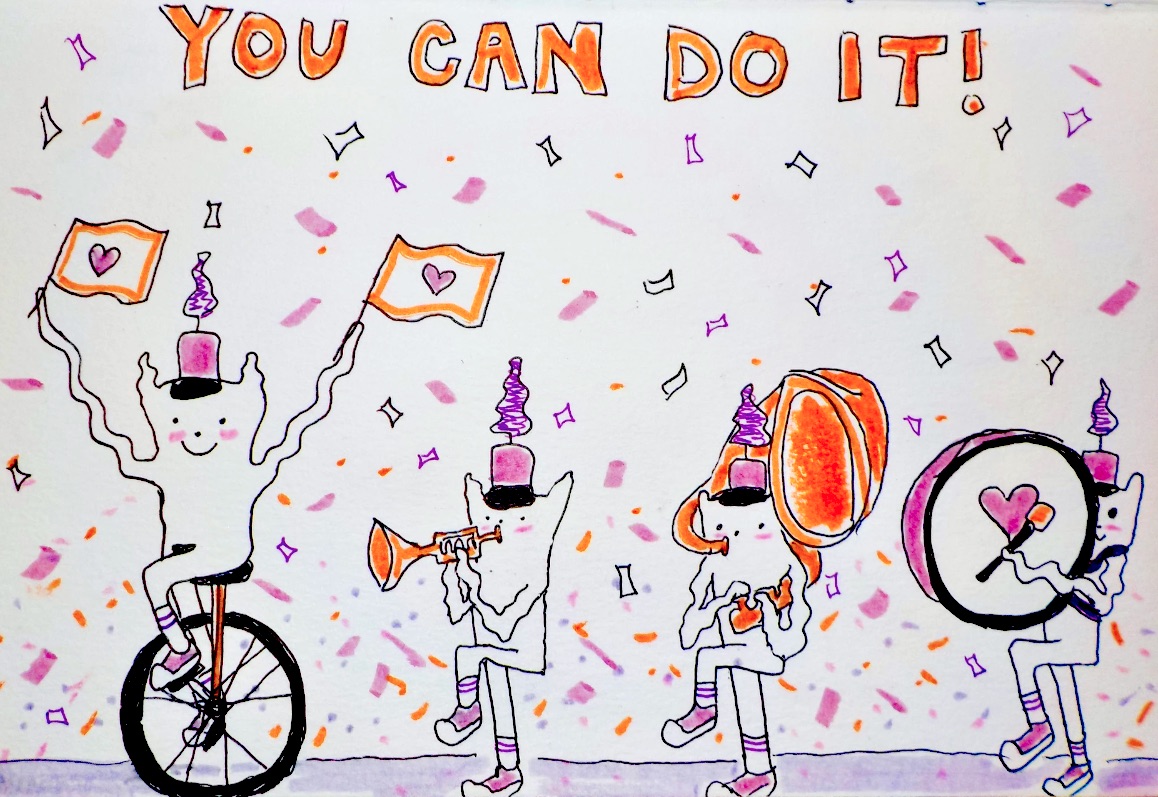 YOU CAN DO IT!